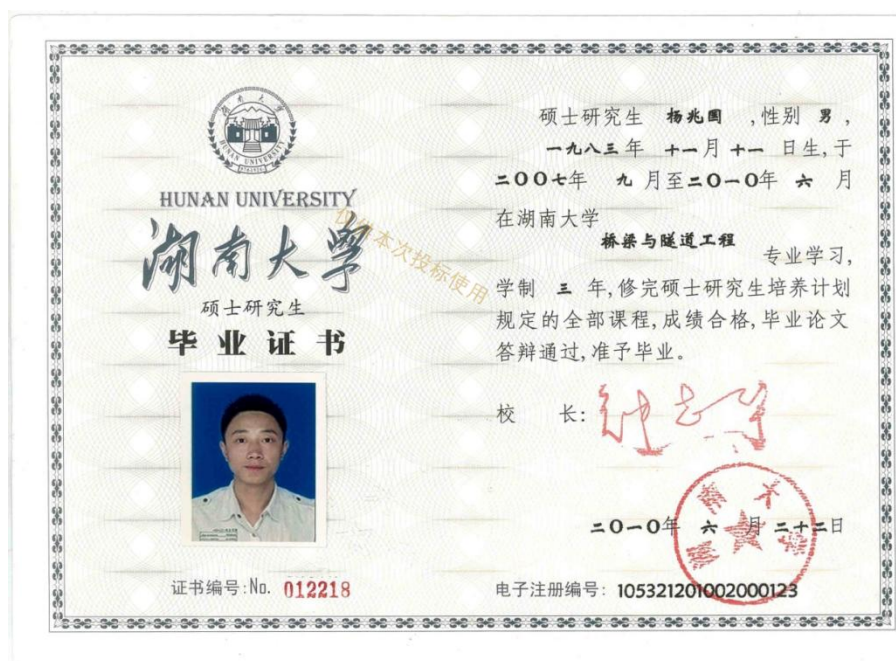 HUNAN UNIVERSITY
湖南大学
硕士研究生
毕业证书
证书编号:No. 012218
硕士研究生 杨兆国 ,性别 男,
一九八三年 十一月十一 日生,于
二00七年 九 月至二0一0年 六 月
在湖南大学
桥梁与隧道工程
专业学习,
学制 三 年,修完硕士研究生培养计划
规定的全部课程,成绩合格,毕业论文
答辩通过,准予毕业。
校 长:
二0一0年 六 月 二十二日
电子注册编号: 105321201002000123
仅供本次投标使用